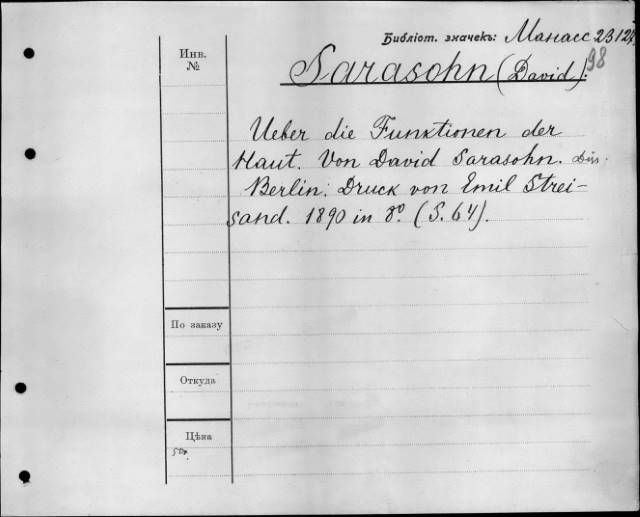 Библіот. значекъ: Манасс 2312
98
Инв.
№
Sarasohn (David).
Ueber die Funktionen der
Haut. Von David Sarasohn. Diss.
Berlin. Druck von Emil Strei-
sand. 1890 in 8º. (S. 64).
По заказу
Откуда
Цѣна